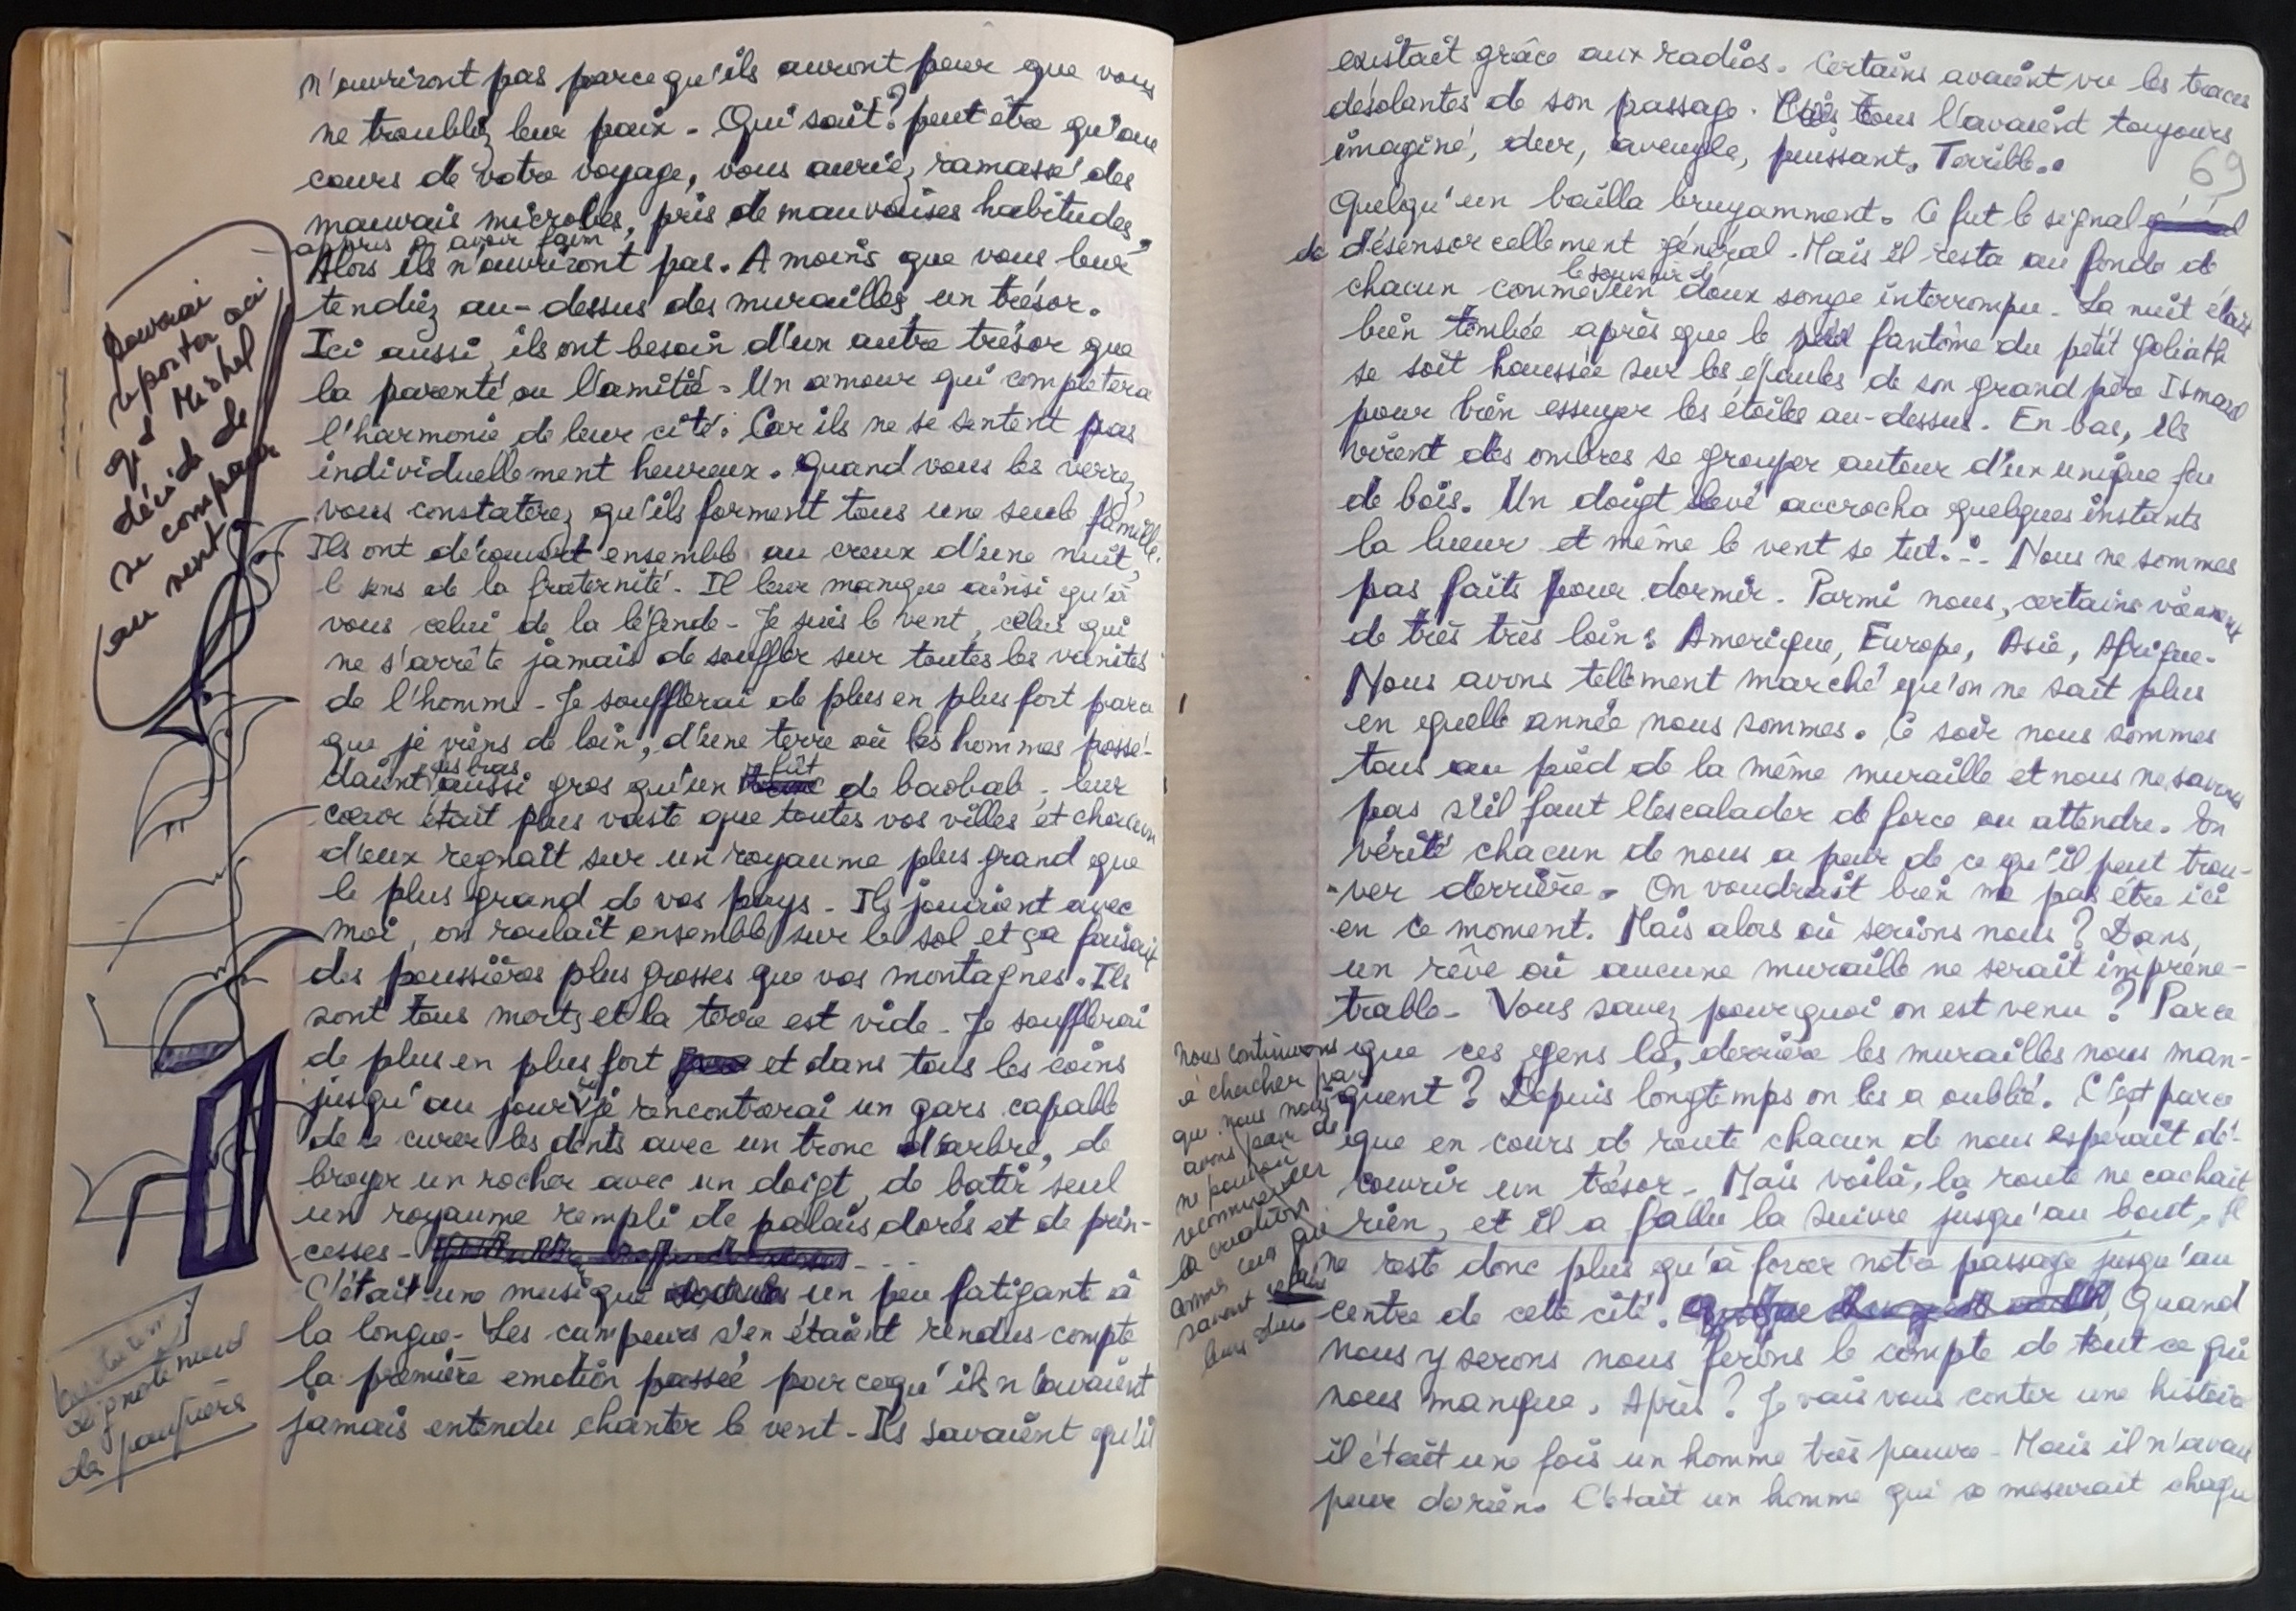 n'ouvriront pas parcequ'ils auront peur que vous
ne troubliez leur paix. Qui sait? peut être qu'au
cours de votre voyage, vous auriez ramassé des
mauvais microbes, pris de mauvaises habitudes,
appris à avoir faim
Alors ils n'ouvriront pas. A moins que vous leur
tendiez au-dessus des murailles, un trésor.
Ici aussi, ils ont besoin d'un autre trésor que
la parenté ou l'amitié. Un amour qui complètera
l'harmonie de leur cité. Car ils ne se sentent pas
individuellement heureux. Quand vous les verrez,
vous constaterez qu'ils forment tous une seule famille.
Ils ont découvert ensemble au creux d'une nuit,
le sens de la fraternité. Il leur manque ainsi qu'à
vous celui de la légende. Je suis le vent, celui qui
ne s'arrête jamais de souffler sur toutes les vanités
de l'homme. Je soufflerai de plus en plus fort parce
que je viens de loin, d'une terre où les hommes possé-
daient des bras aussi gros qu'un fût de baobab, leur
cœur était plus vaste que toutes vos villes et chacun
d'eux regnait sur un royaume plus grand que
le plus grand de vos pays. Ils jouaient avec
moi, on roulait ensemble sur le sol et ça faisait
des poussières plus grosses que vos montagnes. Ils
sont tous morts et la terre est vide. Je soufflerai
de plus en plus fort et dans tous les coins
jusqu'au jour où je rencontrerai un gars capable
de se curer les dents avec un tronc d'arbre, de
broyer un rocher avec un doigt, de batir seul
un royaume rempli de palais dorés et de prin-
cesses - ...
C'était une musique un peu fatigant à
la longue. Les campeurs s'en étaient rendus compte
la première emotion passée parcequ'ils n'avaient
jamais entendu chanter le vent. Ils savaient qu'il
pourrai
reporter ici
qd Michel
décide de
se comparer
au vent
ce gnotement
de paupière
69
existait grâce aux radios. Certains avaient vu les traces
désolantes de son passage. Mais tous l'avaient toujours
imaginé, dur, aveugle, puissant, Terrible.
Quelqu'un bailla bruyamment. Ce fut le signal
de désensorcellement général. Mais il resta au fond de
chacun comme le souvenir d'un doux songe interrompu. La nuit était
bien tombée après que le fantôme du petit Goliath
se soit haussée sur les épaules de son grand père Ismael
pour bien essuyer les étoiles au-dessus. En bas, ils
virent des ombres se grouper autour d'un unique feu
de bois. Un doigt levé accrocha quelques instants
la lueur et même le vent se tut... Nous ne sommes
pas faits pour dormir. Parmi nous, certains viennent
de très très loin: Amerique, Europe, Asie, Afrique.
Nous avons tellement marché qu'on ne sait plus
en quelle année nous sommes. Ce soir nous sommes
tous au pied de la même muraille et nous ne savons
pas s'il faut l'escalader de force ou attendre. En
vérité chacun de nous a peur de ce qu'il peut trou-
-ver derrière. On voudrait bien ne pas être ici
en ce moment. Mais alors où serions nous? Dans,
un rêve où aucune muraille ne serait impéné-
trable. Vous savez pourquoi on est venu? Parce
que ces gens là, derrière les murailles nous man-
quent? Depuis longtemps on les a oublié. C'est parce
que en cours de route chacun de nous espérait dé-
couvrir un trésor. Mais voilà, la route ne cachait
rien, et il a fallu la suivre jusqu'au bout. Il
ne reste donc plus qu'à forcer notre passage jusqu'au
centre de cette cité. Quand
nous y serons nous ferons le compte de tout ce qui
nous manque. Après? Je vais vous conter une histoire
il était une fois un homme très pauvre. Mais il n'avait
peur de rien. C'était un homme qui se mesurait chaque
nous continuons
à chercher par
que nous nous
avons peur de
ne pouvoir
recommencer
la création
comme ceux qui
savent
leurs dieu